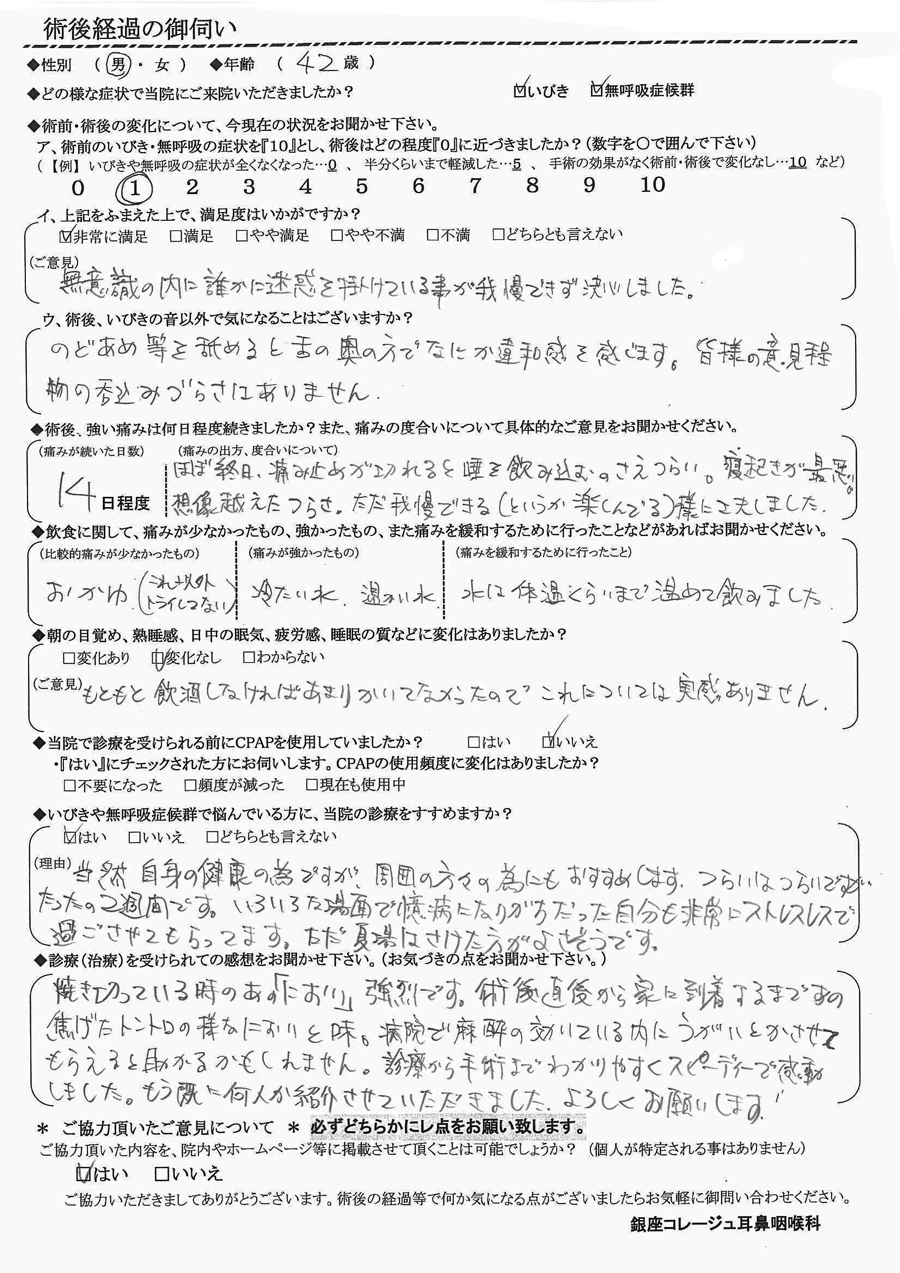 術後経過の御伺い
◆性別 ( 男 ・ 女 ) ◆年齢 ( 42 歳 )
◆どの様な症状で当院にご来院いただきましたか? ☑いびき ☑無呼吸症候群
◆術前・術後の変化について、今現在の状況をお聞かせ下さい。
ア、術前のいびき・無呼吸の症状を『10』とし、術後はどの程度『0』に近づきましたか?(数字を○で囲んで下さい)
(【例】いびきや無呼吸の症状が全くなくなった…0 、 半分くらいまで軽減した…5 、 手術の効果がなく術前・術後で変化なし…10 など)
0 1 2 3 4 5 6 7 8 9 10
イ、上記をふまえた上で、満足度はいかがですか?
☑非常に満足 □満足 □やや満足 □やや不満 □不満 □どちらとも言えない
(ご意見)
無意識の内に誰かに迷惑を掛けている事が我慢できず決心しました。
ウ、術後、いびきの音以外で気になることはございますか?
のどあめ等を舐めると舌の奥の方でなにか違和感を感じます。皆様の意見程
物の呑込みづらさはありません.
◆術後、強い痛みは何日程度続きましたか?また、痛みの度合いについて具体的なご意見をお聞かせください。
(痛みが続いた日数) (痛みの出方、度合いについて)
ほぼ終日、痛み止めが切れると唾を飲み込むのさえつらい。寝起きが最悪。
14日程度 想像越えたつらさ。ただ我慢できる(というか楽しんでる)様に工夫しました.
◆飲食に関して、痛みが少なかったもの、強かったもの、また痛みを緩和するために行ったことなどがあればお聞かせください。
(比較的痛みが少なかったもの) (痛みが強かったもの) (痛みを緩和するために行ったこと)
おかゆ(これ以外トライしてない) 冷たい水、温かい水 水は体温くらいまで温めて飲みました.
◆朝の目覚め、熟睡感、日中の眠気、疲労感、睡眠の質などに変化はありましたか?
□変化あり ☑変化なし □わからない
(ご意見)もともと飲酒しなければあまりかいてなかったのでこれについては実感ありません.
◆当院で診療を受けられる前にCPAPを使用していましたか? □はい ☑いいえ
・『はい』にチェックされた方にお伺いします。CPAPの使用頻度に変化はありましたか?
□不要になった □頻度が減った □現在も使用中
◆いびきや無呼吸症候群で悩んでいる方に、当院の診療をすすめますか?
☑はい □いいえ □どちらとも言えない
(理由)当然自身の健康の為ですが、周囲の方々の為にもおすすめします. つらいはつらいですが
たったの2週間です。いろいろな場面で憶病になりがちだった自分も非常にストレスレスで
過ごさせてもらってます。ただ夏場はさけた方がよさそうです。
◆診療(治療)を受けられての感想をお聞かせ下さい。(お気づきの点をお聞かせ下さい。)
焼き切っている時のあの「におい」強烈です。術後直後から家に到着するまであの
焦げたトントロの様なにおいと味。病院で麻酔の効いている内にうがいとかさせて
もらえると助かるかもしれません。診療から手術までわかりやすくスピーディーで感動
しました。もう既に何人か紹介させていただきました、よろしくお願いします.
＊ ご協力頂いたご意見について ＊ 必ずどちらかにレ点をお願い致します。
ご協力頂いた内容を、院内やホームページ等に掲載させて頂くことは可能でしょうか? (個人が特定される事はありません)
☑はい □いいえ
ご協力いただきましてありがとうございます。術後の経過等で何か気になる点がございましたらお気軽に御問い合わせください。
銀座コレージュ耳鼻咽喉科